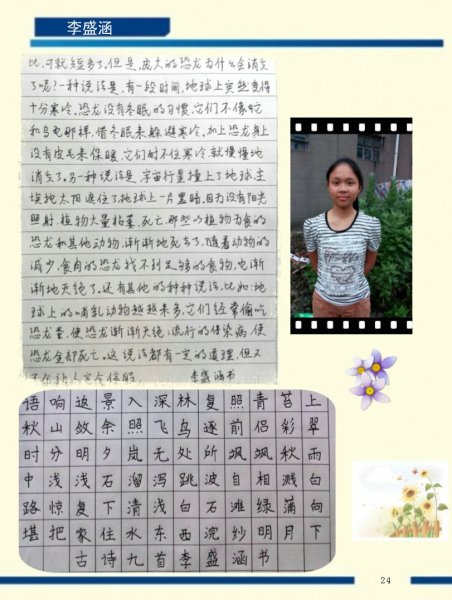 李盛涵
比,可就短多了,但是,庞大的恐龙为什么会消失
了呢?一种说法是,有一段时间,地球上突然变得
十分寒冷,恐龙没有冬眠的习惯,它们不像蛇
和乌龟那样,借冬眠来躲避寒冷,加上恐龙身上
没有皮毛来保暖,它们耐不住寒冷,就慢慢地
消失了。另一种说法是,宇宙行星撞上了地球,尘
埃把太阳遮住了,地球上一片黑暗,因为没有阳光
照射,植物大量枯萎、死亡,那些以植物为食的
恐龙和其他动物,渐渐地死去了,随着动物的
减少,食肉的恐龙找不到足够的食物,也渐
渐地灭绝了,还有其他的种种说法,比如:地
球上的哺乳动物越来越多,它们经常偷吃
恐龙蛋,使恐龙渐渐灭绝;流行的传染病,使
恐龙全部死亡。这说法都有一定的道理,但又
李盛涵书
语响返景入深林复照青苔上
秋山敛余照飞鸟逐前侣彩翠
时分明夕岚无处所飒飒秋雨
中浅浅石溜泻跳波自相溅白
路惊复下清浅白石滩绿蒲向
堪把家住水东西浣纱明月下
古诗九首李盛涵书
24